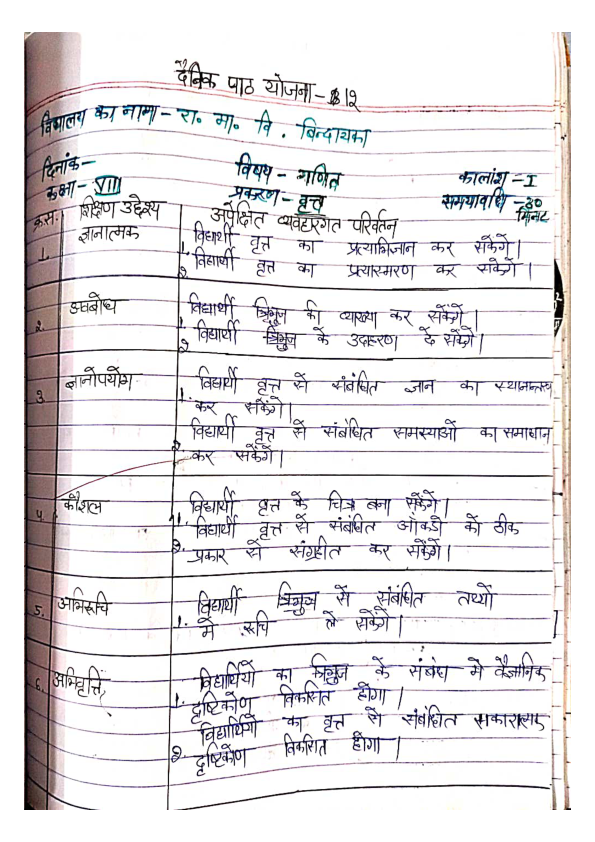 दैनिक पाठ योजना - 12
विद्यालय का नामा - रा. मा. वि. विन्दायका
दिनांक - विषय - गणित कालांश - I
कक्षा - VIII प्रकरण - वृत्त समयावधि - 30 मिनट
क्र.स. शिक्षण उद्देश्य अपेक्षित व्यवहारगत परिवर्तन
1. ज्ञानात्मक 1. विद्यार्थी वृत्त का प्रत्याभिज्ञान कर सकेंगे।
2. विद्यार्थी वृत्त का प्रत्यास्मरण कर सकेंगे।
2. अवबोध 1. विद्यार्थी त्रिभुज की व्याख्या कर सकेंगे।
2. विद्यार्थी त्रिभुज के उदाहरण दे सकेंगे।
3. ज्ञानोपयोग 1. विद्यार्थी वृत्त से संबंधित ज्ञान का
कर सकेंगे।
2. विद्यार्थी वृत्त से संबंधित समस्याओं का समाधान
कर सकेंगे।
4. कौशल 1. विद्यार्थी वृत्त के चित्र बना सकेंगे।
2. विद्यार्थी वृत्त से संबंधित आँकडों को ठीक
प्रकार से संग्रहीत कर सकेंगे।
5. अभिरूचि 1. विद्यार्थी त्रिभुज से संबंधित तथ्यों
मे रूचि ले सकेंगे।
6. अभिवृत्ति 1. विद्यार्थियों का त्रिभुज के संबंध मे वैज्ञानिक
दृष्टिकोण विकसित होगा।
2. विद्यार्थियों का वृत्त से संबंधित सकारात्मक
दृष्टिकोण विकसित होगा।